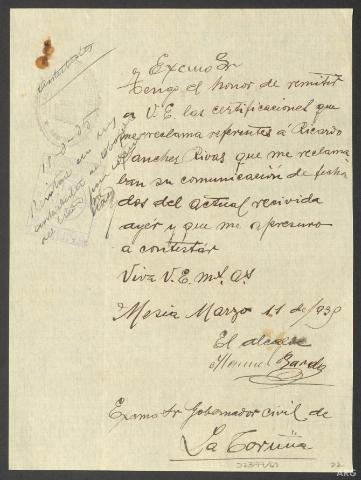 Excmo Sr
Tengo el honor de remitir
a V.E. las certificaciones que
me reclama referentes á Ricardo
Sanches Rivas que me reclama
ban su comunicación de fecha
dos del actual recivida
ayer y que me apresuro
a contestar
Viva V.E. ms. as.
Mesia Marzo 11 de 1939
El alcalde
Manuel
Exmo Sr Gobernador civil de
La Coruña
22
ARG